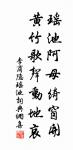 瑤池阿母綺窗開
黃竹歌聲動地哀
李商隱瑤池詞典網書